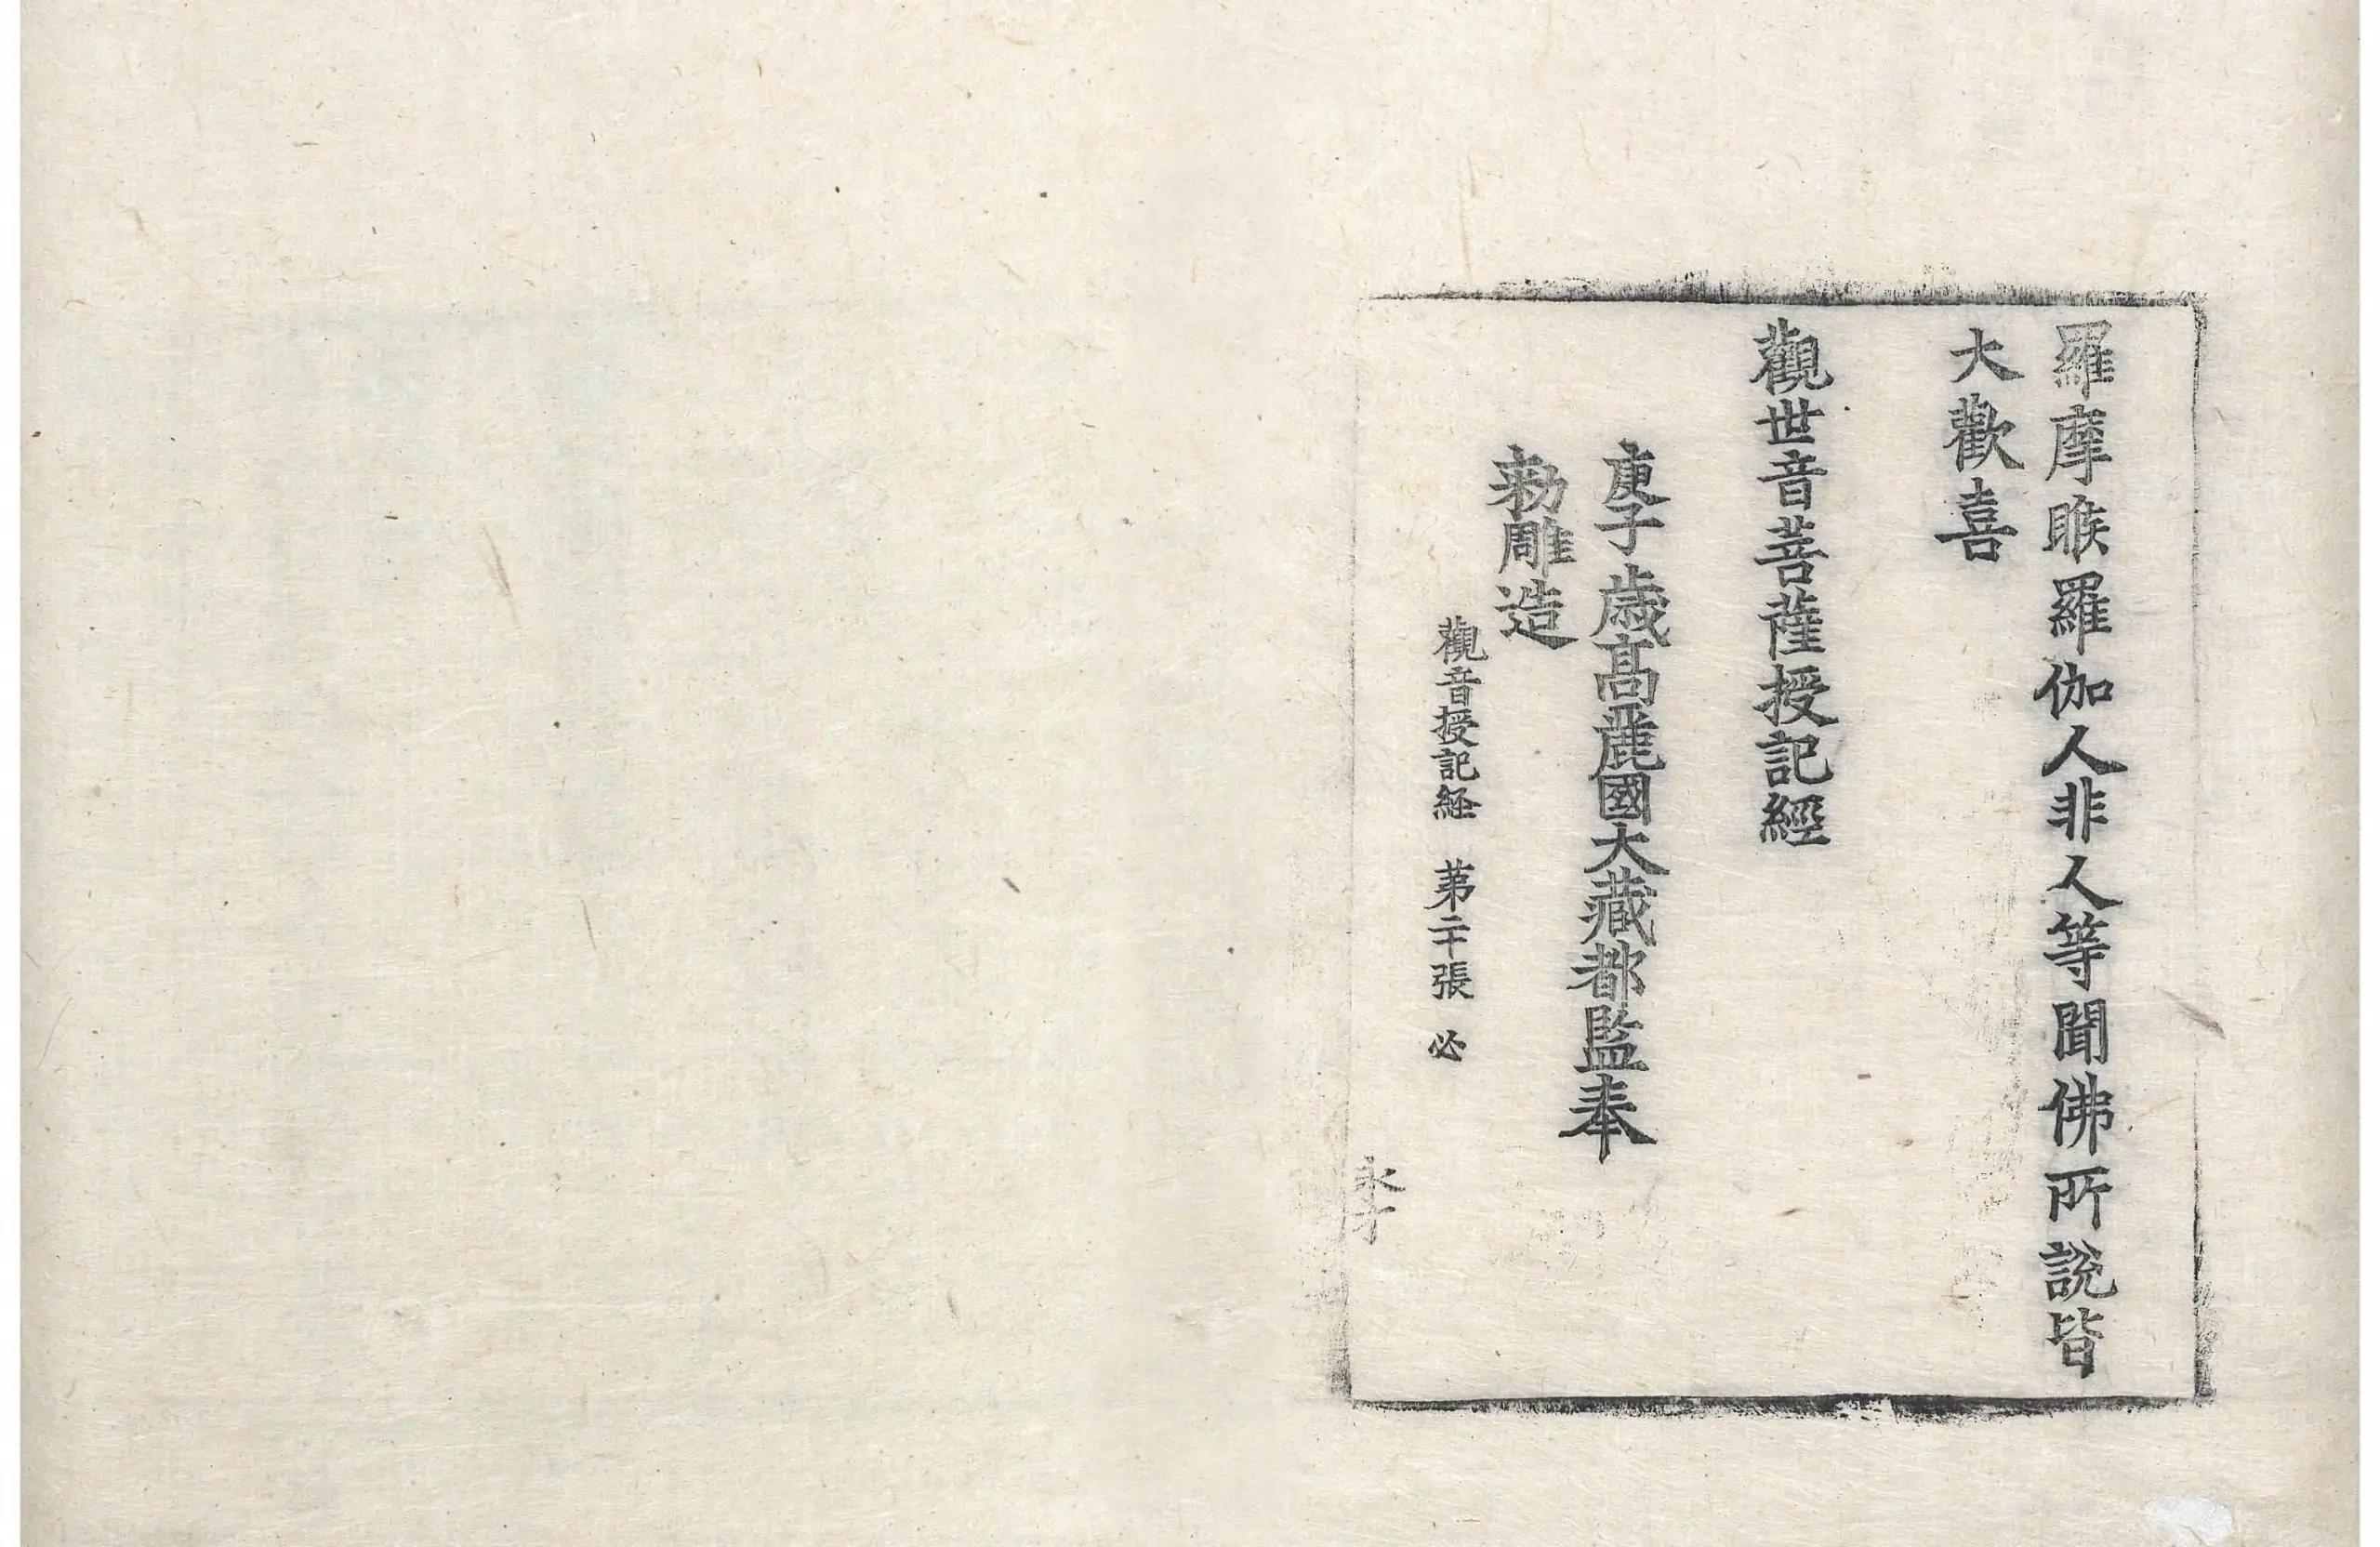 羅摩睺羅伽人非人等聞佛所說皆
大歡喜
觀世音菩薩授記經
庚子歳髙麗國大藏都監奉
勅雕造
觀音授記経 苐二十張 必
永才